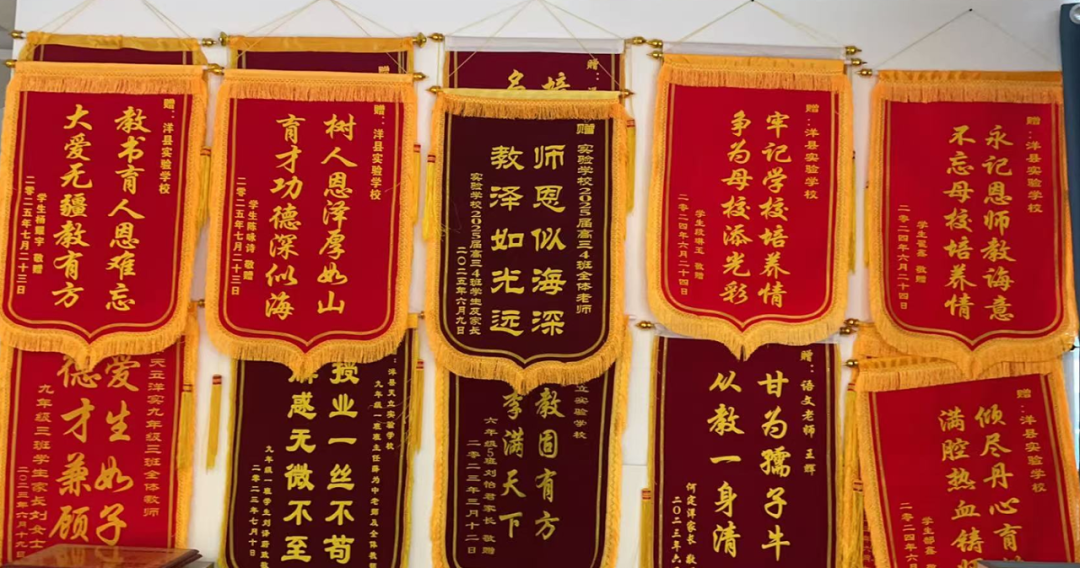 赠：洋县实验学校
教书育人恩难忘
大爱无疆教有方
学生杨耀宇 敬赠
二零二五年七月二十三日
赠：洋县实验学校
树人恩泽厚如山
育才功德深似海
学生陈咏诗 敬赠
二零二五年七月二十三日
赠
实验学校2025届高三4班全体老师
师恩似海深
教泽如光远
实验学校2025届高三4班学生及家长
二〇二五年六月九日
赠：洋县实验学校
牢记学校培养情
争为母校添光彩
敬赠
二零二四年六月二十四日
赠：洋县实验学校
永记恩师教诲意
不忘母校培养情
敬赠
二零二四年六月二十四日
九年级三班全体教师
爱生如子
德才兼顾
九年级三班学生家长刘女士
洋县天立实验学校
授业一丝不苟
解惑无微不至
二〇二三年七月
立实验学校
教固有方
李满天下
六年级5班刘怡君家长 敬赠
二〇二三年三月十二日
赠：语文老师 王辉
甘为孺子牛
从教一身清
何定洋家长
二〇二三年六
赠：洋县实验学校
倾尽丹心育
满腔热血铸
二零二四年六